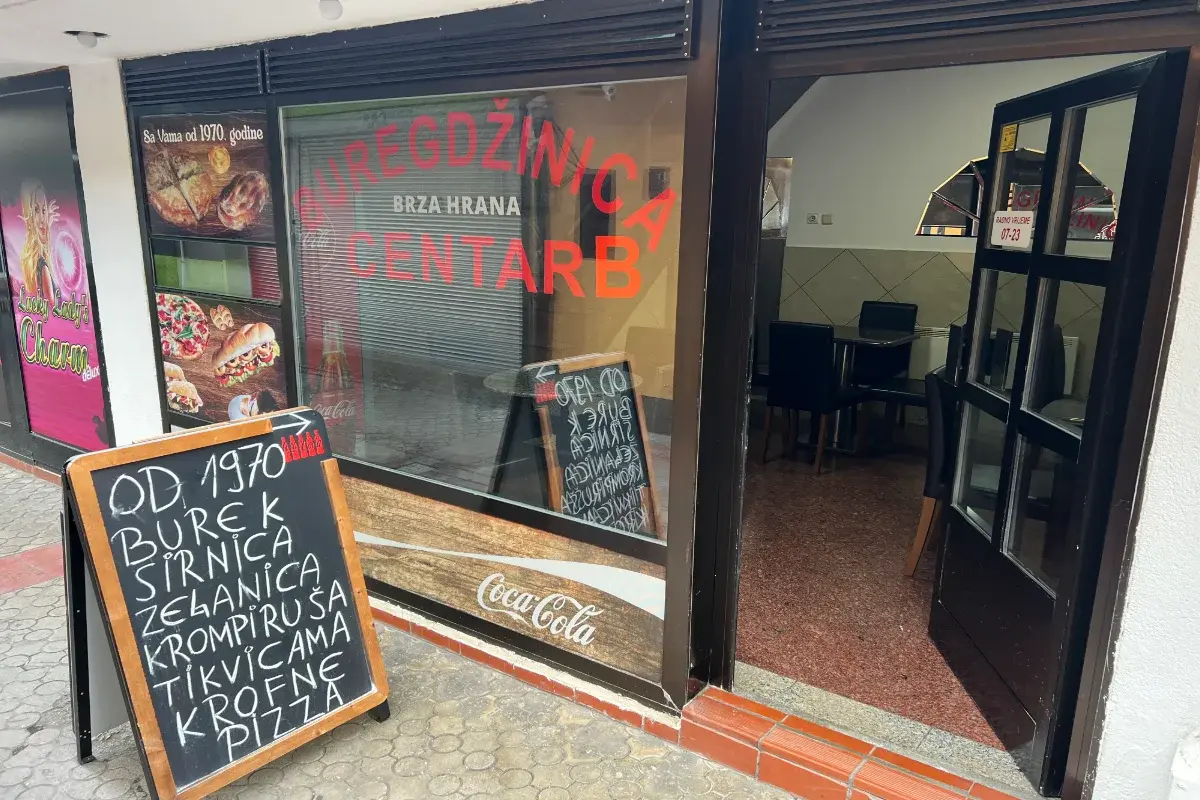 Sa Vama od 1970. godine
BUREGDŽINICA
BRZA HRANA
CENTAR B
RADNO VRIJEME
07-23
Lucky Lady's
Charm
deluxe
Coca-Cola
Coca-Cola
OD 1970
BUREK
SIRNICA
ZELANICA
KROMPIRUŠA
TIKVICAMA
KROFNE
PIZZA
OD 1970
BUREK
SIRNICA
ZELANICA
KROMPIRUŠA
TIKVICAMA